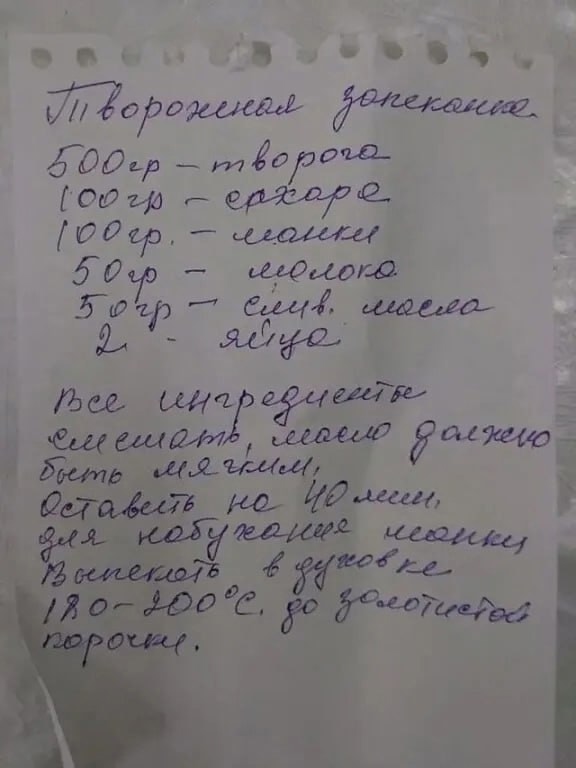 Творожная запеканка
500гр – творога
100гр – сахара
100гр. – манки
50гр – молока
50гр – слив. масла
2 - яйца
Все ингредиенты
смешать, масло должно
быть мягким,
Оставить на 40 мин,
для набухания манки
Выпекать в духовке
180-200°С. до золотистой
корочки.